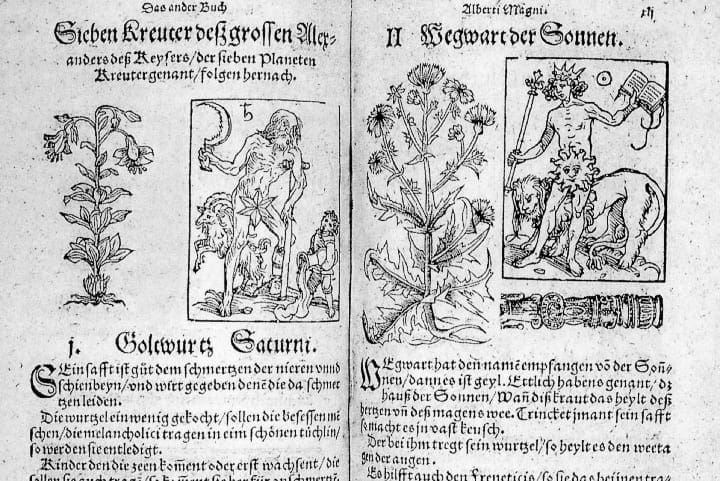 Das ander Buch
Sieben Kreuter deß grossen Alex-
anders deß Keysers/der sieben Planeten
Kreuter genant/folgen hernach.
♄
j. Goltwurtz Saturni.
SEin safft ist gůt dem schmertzen der nieren vnnd
schienbeyn/vnd wirt gegeben denē die da schmer
tzen leiden.
Die wurtzel ein wenig gekocht/sollen die besessen mē
schen/die melancholici tragen in eim schönen tüchlin/
so werden sie entledigt.
Kinder den die zeen kom̄ent oder erst wachsent/die
Alberti Magni.
II Wegwart der Sonnen.
☉
WEgwart hat den namē empfangen vō der Soñ-
nen/dann es ist geyl. Ettlich habens genant/dz
hauß der Sonnen/Wañ diß kraut das heylt deß
hertzen vñ deß magens wee. Trincket jmant sein safft
so macht es jn vast keusch.
Der bei ihm tregt sein wurtzel/so heylt es den weeta
gen der augen.
Es hilfft auch den Freneticis/so sie das bei jnen tra-